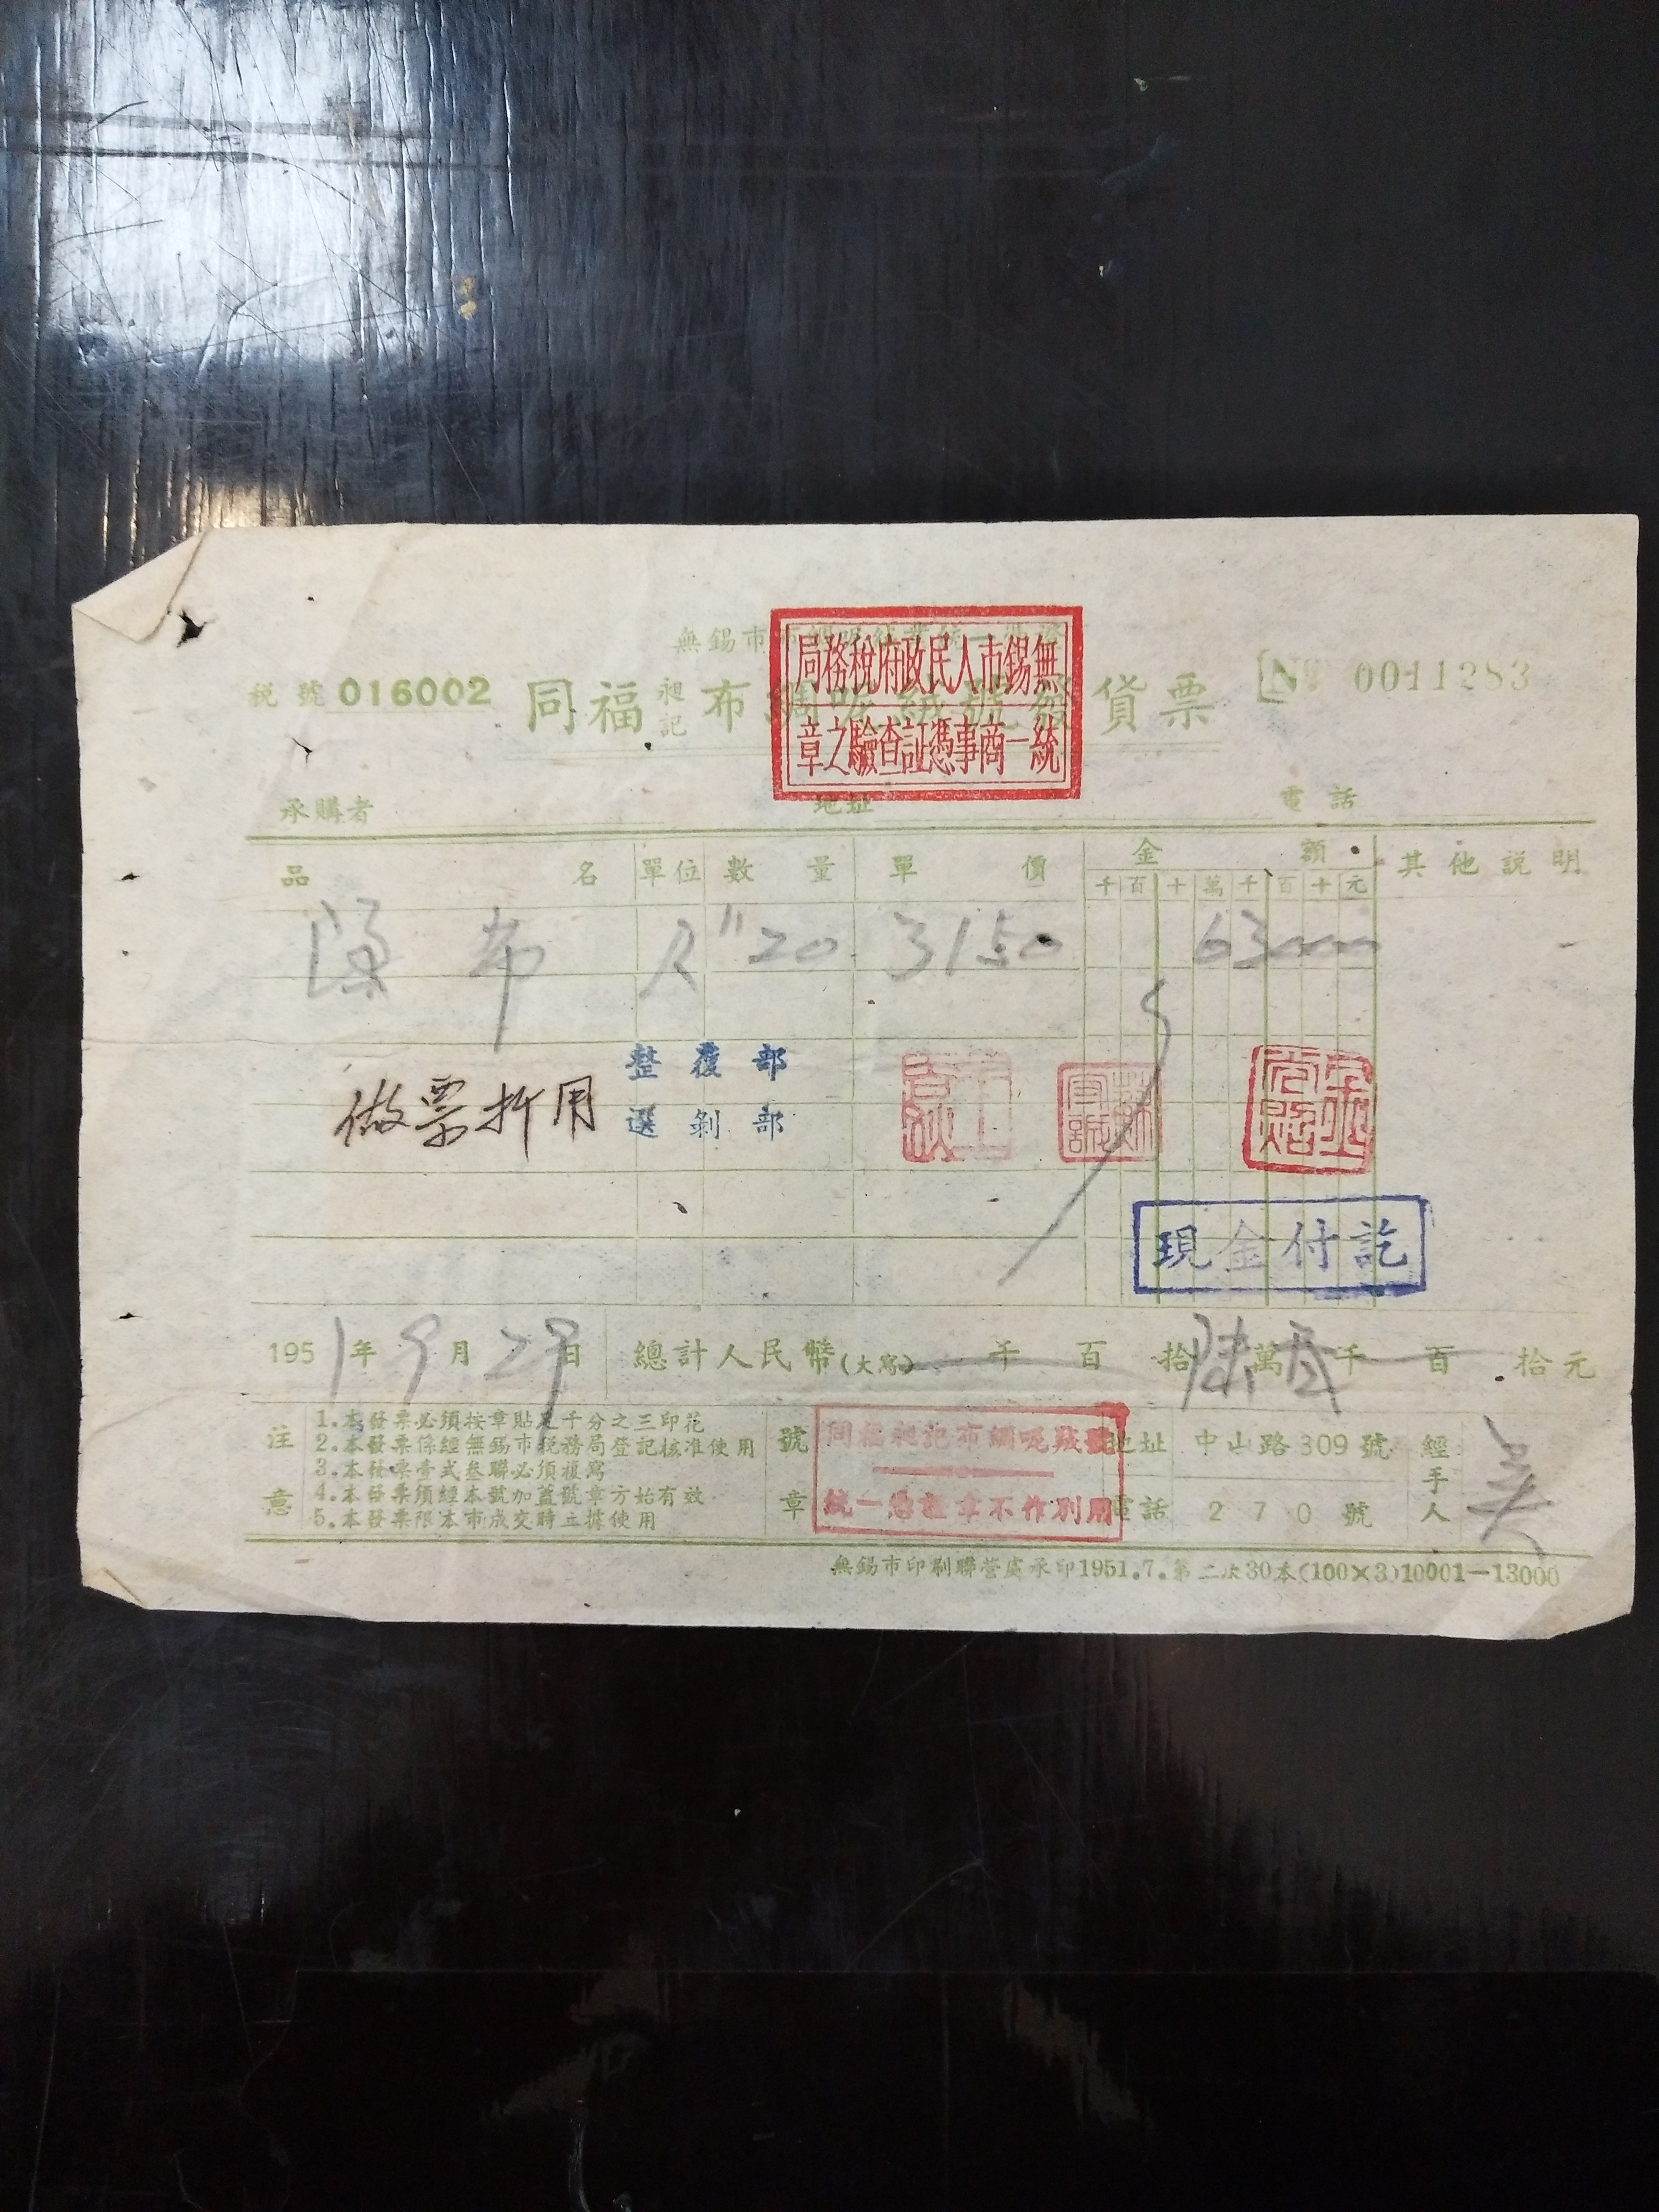 無錫市
無錫市人民政府稅務局
統一商事憑証查驗之章
税號 016002
同福昶記布綢呢絨號發貨票
№ 0011283
承購者 地址 電話
品名 單位 數量 單價 金額 其他說明
千百十萬千百十元
布 尺 20 3150 63000
整覆部
選剝部
做票折用
現金付訖
1951年9月29日 總計人民幣(大寫) 千 百 拾陸萬叁千 百 拾元
注意
1.本發票必須按章貼足千分之三印花
2.本發票係經無錫市稅務局登記核准使用
3.本發票壹式叁聯必須複寫
4.本發票須經本號加蓋號章方始有效
5.本發票限本市成交時立據使用
號章
同福昶記布綢呢絨號
統一憑證章不作別用
地址 中山路309號
電話 270號
經手人 吴
無錫市印刷聯營處承印1951.7.第二次30本(100×3)10001—13000